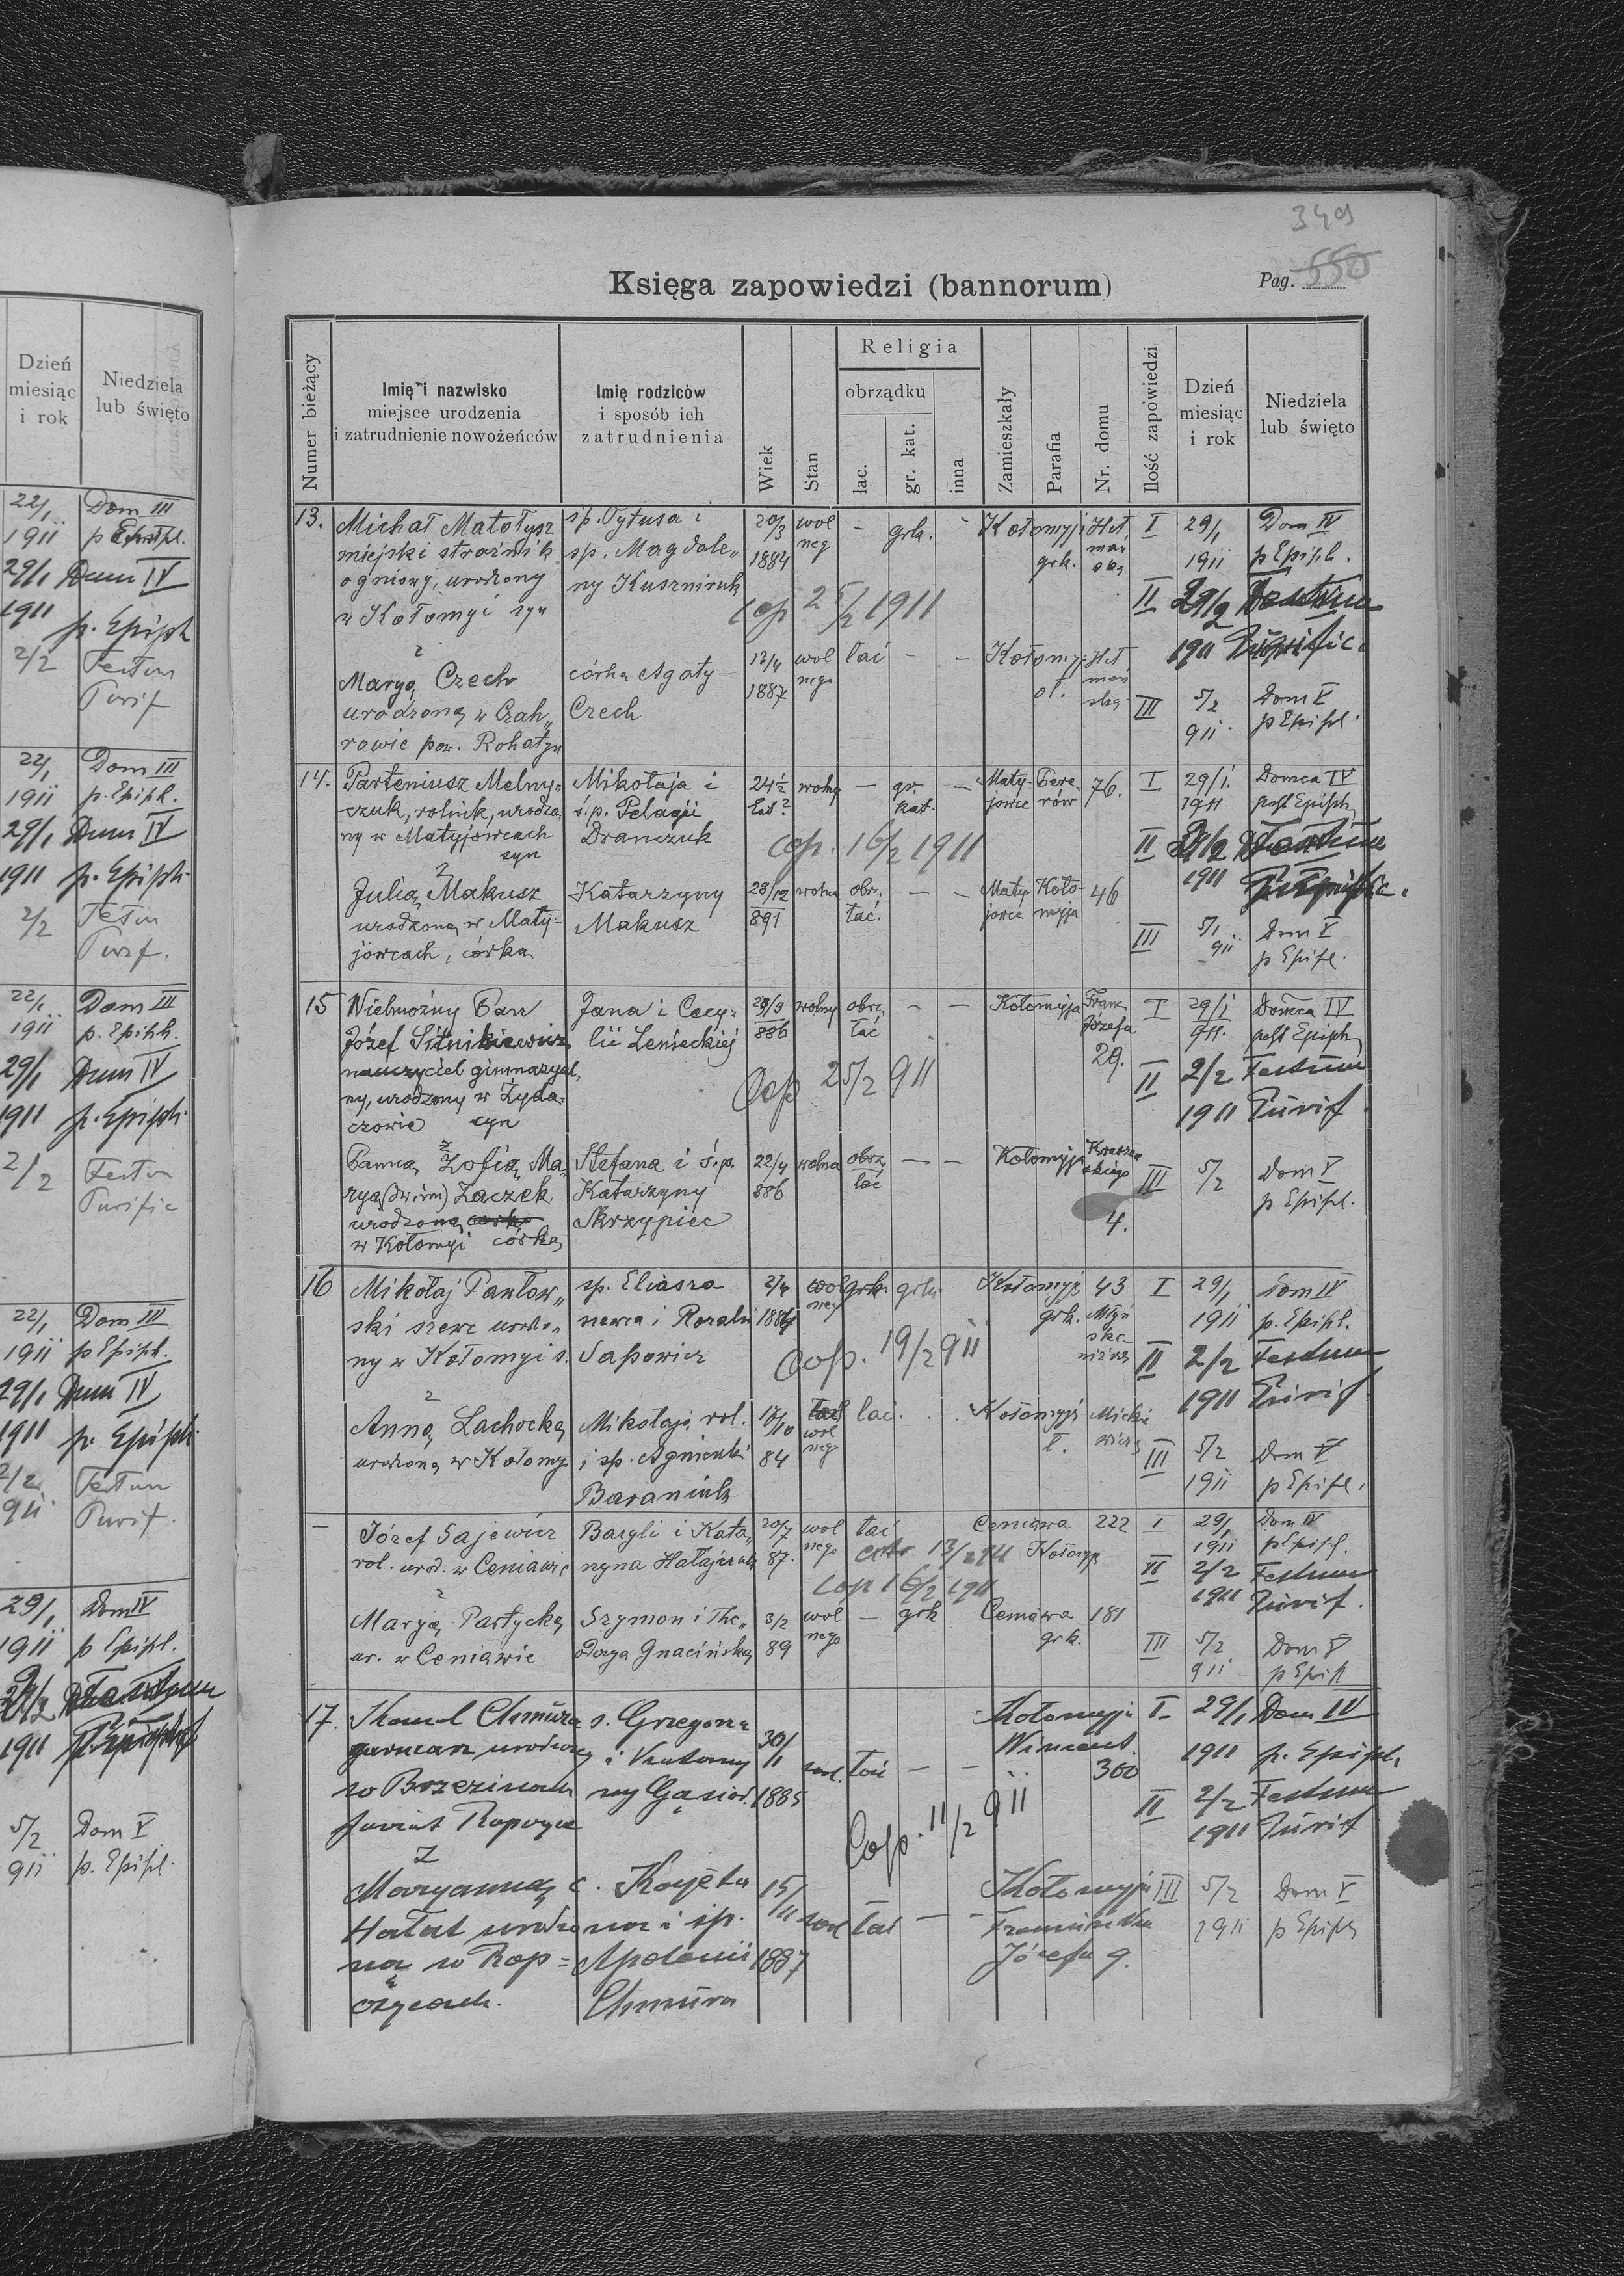 Dzień
miesiąc
i rok
Niedziela
lub święto
22/1 Dom III
1911 p Epiph.
29/1 Dum IV
1911 p. Epiph
2/2 Festum
Purif
22/1 Dom III
1911 p. Epiph.
29/1 Dum IV
1911 p. Epiph
2/2 Festum
Purif.
22/1 Dom III
1911 p. Epiph.
29/1 Dum IV
1911 p. Epiph
2/2 Festum
Purific
22/1 Dom III
1911 p Epiph.
29/1 Dum IV
1911 p. Epiph
2/2 Festum
911 Purif.
29/1 Dom IV
1911 p Epiph.
2/2 Festum
1911
5/2 Dom V
911 p. Epiph.
349
Księga zapowiedzi (bannorum)
Pag. 550
Numer bieżący
Imię i nazwisko
miejsce urodzenia
i zatrudnienie nowożeńców
Imię rodziców
i sposób ich
zatrudnienia
Wiek
Stan
Religia
obrządku
łac.
gr. kat.
inna
Zamieszkały
Parafia
Nr. domu
Ilość zapowiedzi
Dzień
miesiąc
i rok
Niedziela
lub święto
13. Michał Matołysz sp. Tytusa i 20/3 wol — grk. - Kołomyji Het I 29/1 Dom IV
miejski strażnik sp. Magdale„ 1884 neg grk. mań 1911 p Epiph.
ogniowy, urodzony ny Kuszniruk ską
w Kołomyi syn cop 25/2 1911 II 2/2 Festum
z 1911 Purific.
Maryą Czech córka Agaty 12/4 wol łać - - Kołomyji Het
urodzoną w Czah„ Czech 1887 nego ot. mań ską III 5/2 Dom V
rowie pow. Rohatyn 911 p Epiph.
14. Parteniusz Melny= Mikołaja i 24½ wolny — gr. — Maty- Cere 76. I 29/1. Domca IV
czuk, rolnik, urodzo ś.p. Pelagii lat? kat. jowce rów 1911 post Epiph
ny w Matyjowcach Dranczuk cop. 16/2 1911 II 2/2 Festum
syn 1911
z
Julią Makusz Katarzyny 28/12 wolna obrz. — — Maty- Koło- 46
urodzoną w Maty- Makusz 891 łać. jowce myja III 5/1 Dom V
jowcach, córką 911 p Epiph.
15 Wielmożny Pan Jana i Cecy= 29/3 wolny obrz. — — Kołomyja Franc. I 29/1 Domca IV
Józef Sitnikiewicz lii Lenieckiej 886 łać Józefa 911. post Epiph
nauczyciel gimnazyal, 29. II 2/2 Festum
ny, urodzony w Żyda- Cop 25/2 911 1911 Purif
czowie syn
z
Panną Zofią Ma Stefana i ś.p. 22/4 wolna obrz. — — Kołomyja III 5/2 Dom V
ryą (dwim) Zaczek Katarzyny 886 łać skiego p Epiph.
urodzoną córką Skrzypiec 4.
w Kołomyi córką
16 Mikołaj Pawłow„ sp. Eliasza 2/4 wol grk. grk. Kołomyji 43 I 29/1 Dom IV
ski szewc urodzo„ szewca i Rozalii 1884 neg grk. 1911 p. Epiph.
ny w Kołomyi s. Sapowicz Cop. 19/2 911 II 2/2 Festum
z 1911 Purif.
Anną Lachocką Mikołaja rol. 17/10 łać łac. . . Kołomyji Micki
urodzoną w Kołomyi i sp. Agnieszki 84 wol nego ł. III 5/2 Dom V
Baraniuk 1911 p Epiph.
— Józef Sajewicz Bazyli i Kata„ 20/7 wol łać Ceniawa 222 I 29/1 Dom IV
rol. urod. w Ceniawie rzyna 87. nego 13/2 911 Kołomyja 1911 p Epiph.
z cop 16/2 1911 II 2/2 Festum
1911 Purif.
Maryą Partycką Szymon i The„ 3/2 wol — grk Ceniawa 181
ur. w Ceniawie odozya Gnacińska 89 nego grk. III 5/2 Dom V
911 p Epiph
17. Chmura s. Grzegorza 30/11 Kołomyja I 29/1 Dom IV
garncarz urodzony i wol. łać — — 360 1911 p. Epiph.
w Brzezinach ny Gąsior. 1885 II 2/2 Festum
powiat Ropczyce Cop. 11/2 911 1911 Purif
z
Maryanną c. Kajeta 15/11 Kołomyja III 5/2 Dom V
Hałat urodzo na i sp. wol łać — - 1911 p Epiph
ną w Rop= Apolonii 1887 Józefa 9.
czycach. Chmura